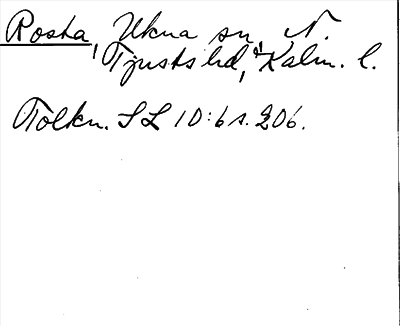 Rosta, Ukna sn, N.
Tjusts hd, Kalm. l.
Tolkn. SL 10:6 s. 206.